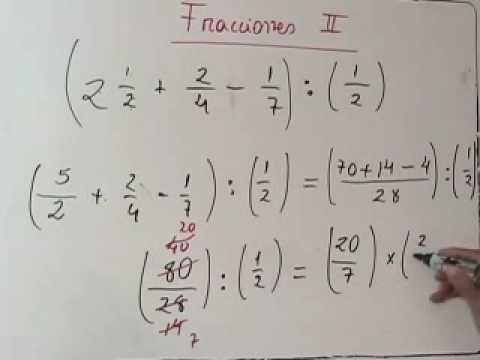 Fracciones II
(2 1/2 + 2/4 - 1/7) : (1/2)
(5/2 + 2/4 - 1/7) : (1/2) = (70+14-4/28) : (1/2)
20
40
(80/28) : (1/2) = (20/7) × (2
14
7